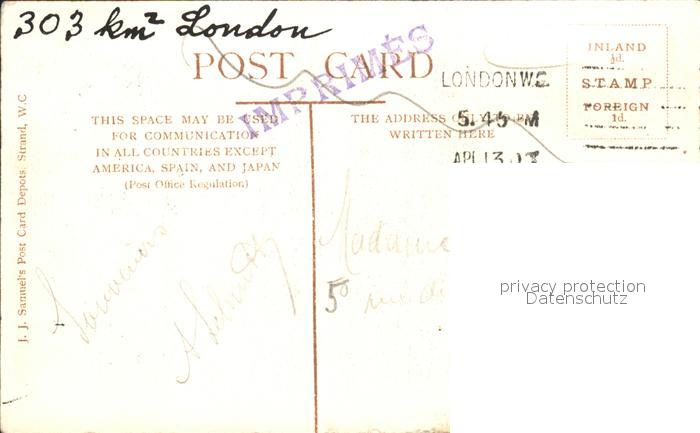 303 km² London
POST CARD
IMPRIMÉS
INLAND
½d.
STAMP
FOREIGN
1d.
LONDON W.C.
5.45 PM
THIS SPACE MAY BE USED
FOR COMMUNICATION
IN ALL COUNTRIES EXCEPT
AMERICA, SPAIN, AND JAPAN
(Post Office Regulation)
THE ADDRESS ONLY TO BE
WRITTEN HERE
J. J. Samuel's Post Card Depots. Strand, W.C
Souvenirs
Madame
50 rue de
privacy protection
Datenschutz